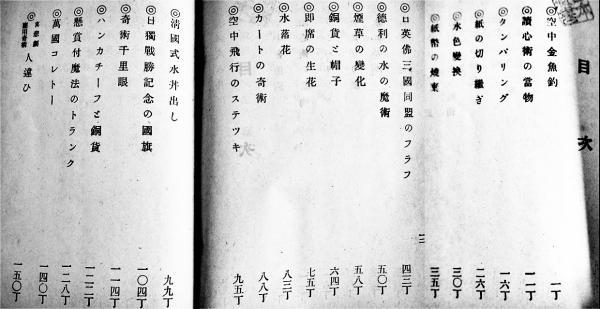 目次
◎空中金魚釣 一丁
◎讀心術の當物 一一丁
◎タンバリング 一六丁
◎紙の切り繼ぎ 二六丁
◎水色變換 三〇丁
◎紙幣の燒棄 三五丁
◎日英佛三國同盟のフラフ 四三丁
◎德利の水の魔術 五〇丁
◎煙草の變化 五八丁
◎銅貨と帽子 六四丁
◎卽席の生花 七五丁
◎水落花 八三丁
◎カートの奇術 八八丁
◎空中飛行のステツキ 九五丁
◎淸國式水丼出し 九九丁
◎日獨戰勝記念の國旗 一〇四丁
◎奇術千里眼 一一四丁
◎ハンカチーフと銅貨 一二二丁
◎懸賞付魔法のトランク 一二八丁
◎萬國コレトー 一四〇丁
◎喜悲劇應用奇術 人違ひ 一五〇丁